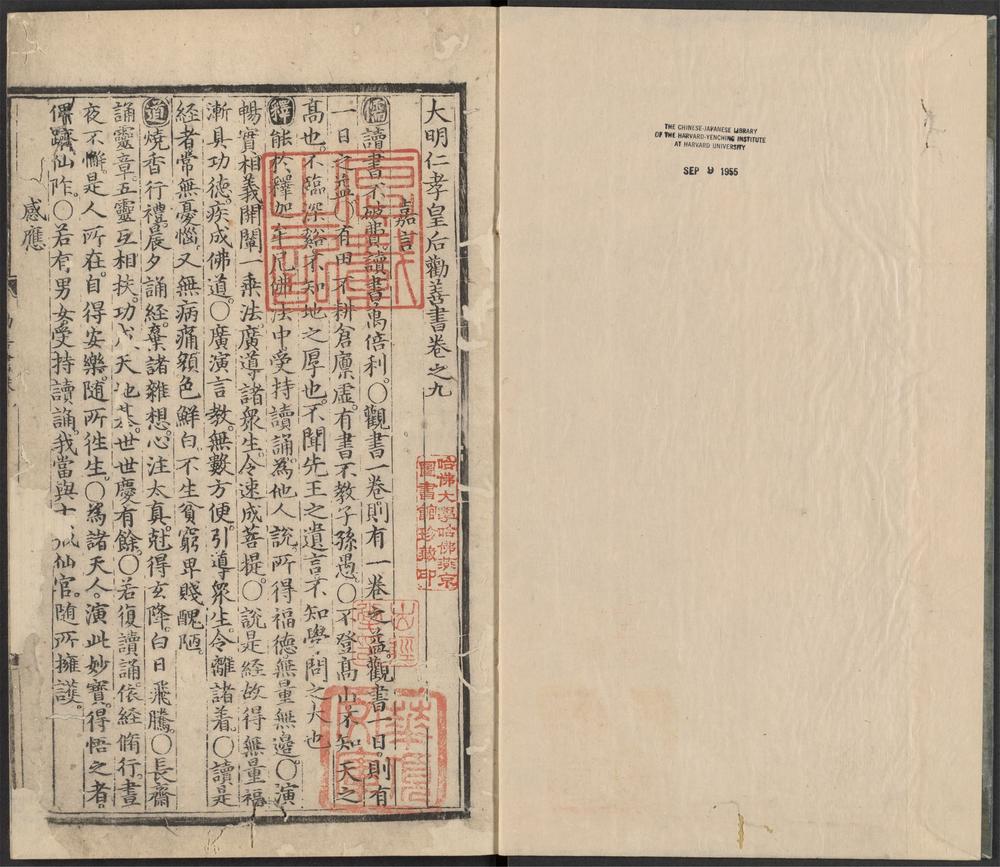 大明仁孝皇后勸善書卷之九
嘉言
儒讀書不破費。讀書萬倍利。○觀書一卷。則有一卷之益。觀書一日。則有
一日之益。○有田不耕倉廩虛。有書不教子孫愚。○不登高山不知天之
高也。不臨深谿。不知地之厚也。不聞先王之遺言。不知學問之大也
釋能於釋迦牟尼佛法中。受持讀誦。為他人說。所得福德無量無邊。○演
暢實相義。開闡一乘法。廣導諸眾生。令速成菩提。○說是經故得無量福
漸具功德。疾成佛道。○廣演言教。無數方便。引導眾生。令離諸着。○讀是
経者常無憂惱。又無病痛。顏色鮮白。不生貧窮卑賤醜陋。
道燒香行禮。晨夕誦經。棄諸雜想。心注太真。尅得玄降。白日飛騰。○長齋
誦靈章。五靈互相扶。功 天 世世慶有餘。○若復讀誦。依經脩行。晝
夜不懈。是人所在。自得安樂。随所徃生。○為諸天人。演此妙寶。得悟之者。
俱躋仙阼。○若有男女受持讀誦。我當與十 仙官。随所擁護。
感應
哈佛大學哈佛燕京
圖書館珍藏印
THE CHINESE-JAPANESE LIBRARY
OF THE HARVARD-YENCHING INSTITUTE
AT HARVARD UNIVERSITY
SEP 9 1955